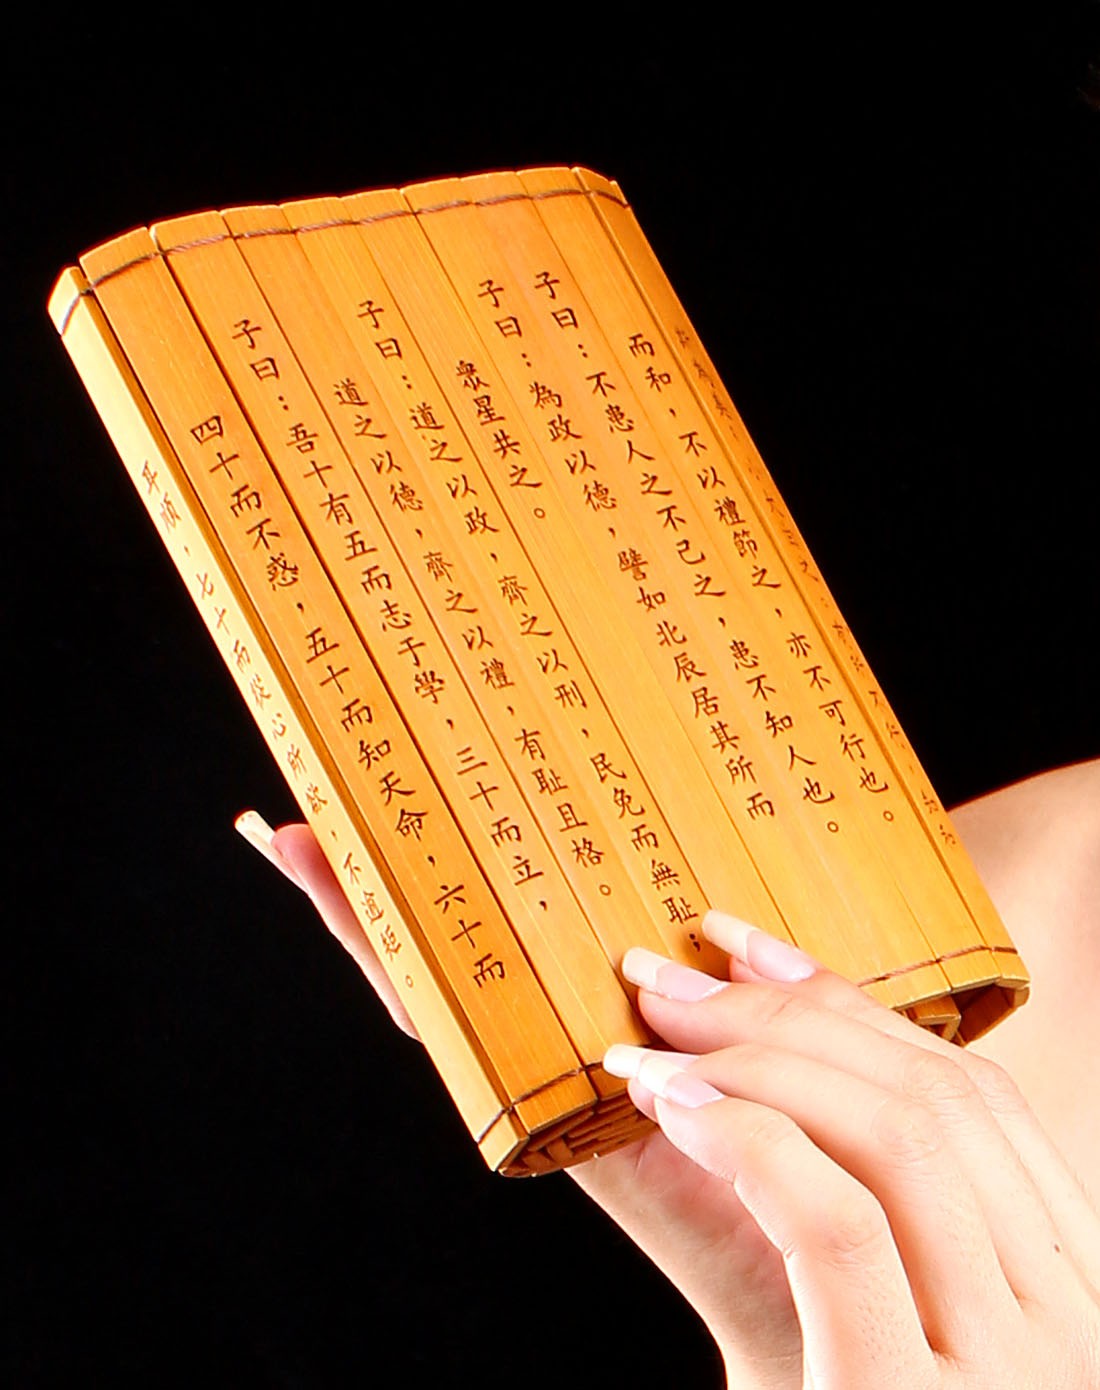 為美，大由之；有所不行，知和
而和，不以禮節之，亦不可行也。
子曰：不患人之不己之，患不知人也。
子曰：為政以德，譬如北辰居其所而
眾星共之。
子曰：道之以政，齊之以刑，民免而無耻；
道之以德，齊之以禮，有耻且格。
子曰：吾十有五而志于學，三十而立，
四十而不惑，五十而知天命，六十而
耳順，七十而從心所欲，不逾矩。